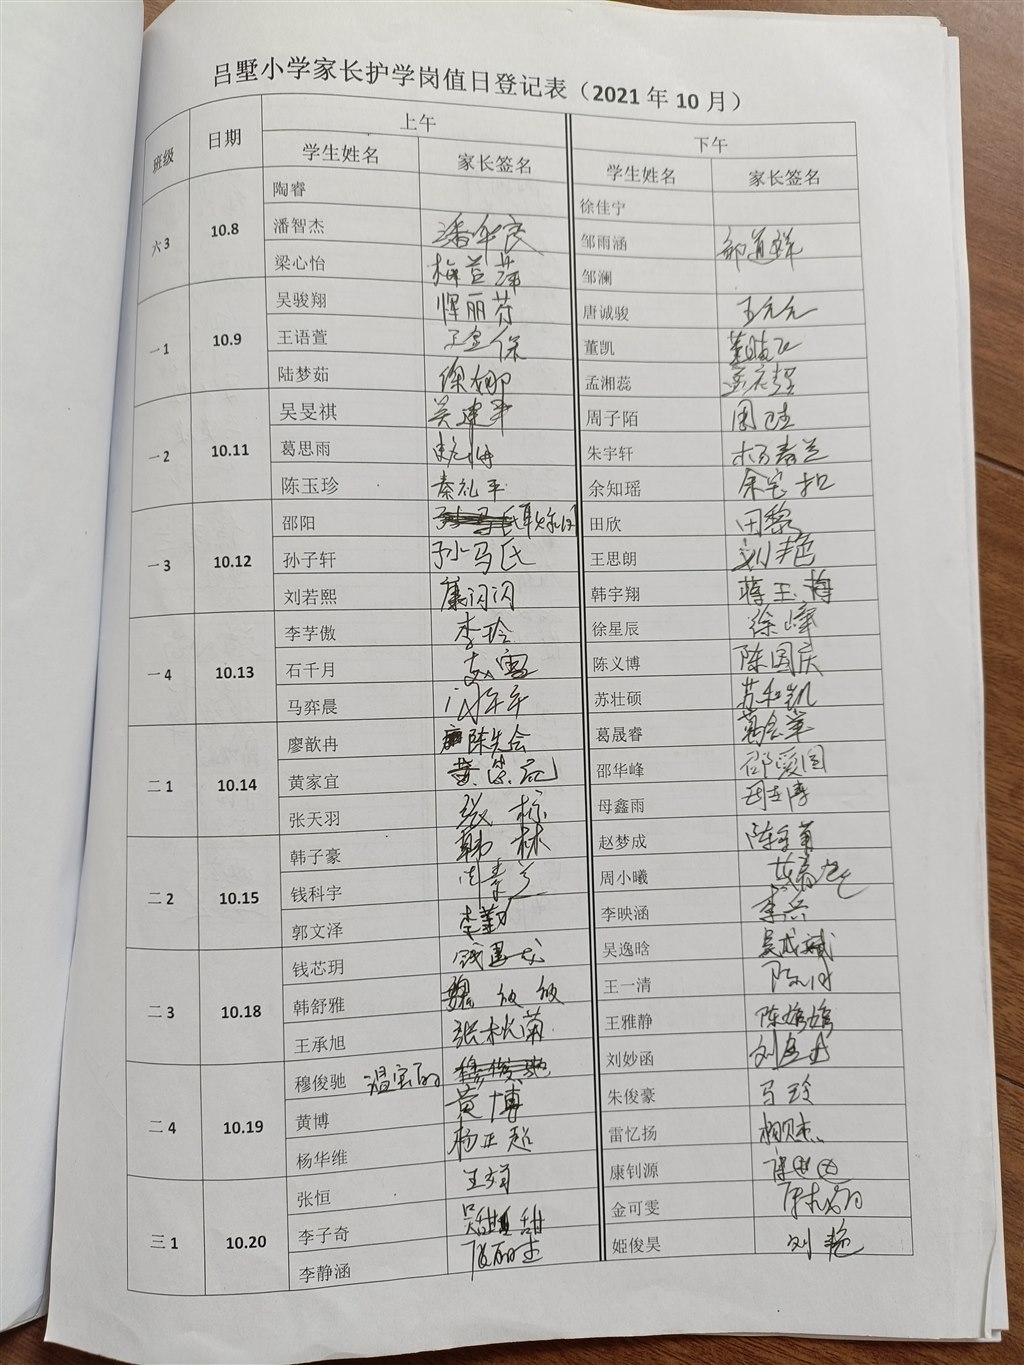 吕墅小学家长护学岗值日登记表（2021 年 10 月）
班级 日期 上午 下午
学生姓名 家长签名 学生姓名 家长签名
六3 10.8
陶睿 徐佳宁
潘智杰 潘华良 邹雨涵
梁心怡 梅苔萍 邹澜
一1 10.9
吴骏翔 恽丽芬 唐诚骏 王元元
王语萱 董凯
陆梦茹 徐娜 孟湘蕊
一2 10.11
吴旻祺 吴建平 周子陌
葛思雨 朱宇轩 杨春兰
陈玉珍 秦礼平 余知瑶 余宝扣
一3 10.12
邵阳 田欣 田黎
孙子轩 孙马氏 王思朗 刘艳
刘若熙 闪闪 韩宇翔 蒋玉梅
一4 10.13
李芓傲 李玲 徐星辰 徐峰
石千月 陈义博 陈国庆
马弈晨 苏壮硕 苏和凯
二1 10.14
廖歆冉 陈先会 葛晟睿
黄家宜 邵华峰 邵爱国
张天羽 张标 母鑫雨
二2 10.15
韩子豪 韩林 赵梦成
钱科宇 周小曦
郭文泽 李勤 李映涵 李兵
二3 10.18
钱芯玥 吴逸晗 吴成斌
韩舒雅 魏 王一清
王承旭 张秋菊 王雅静 陈嫦嫦
二4 10.19
穆俊驰 温宝丽 刘妙函
黄博 黄博 朱俊豪 马玲
杨华维 杨正超 雷忆扬
三1 10.20
张恒 康钊源
李子奇 吴甜甜 金可雯
李静涵 姬俊昊 刘艳